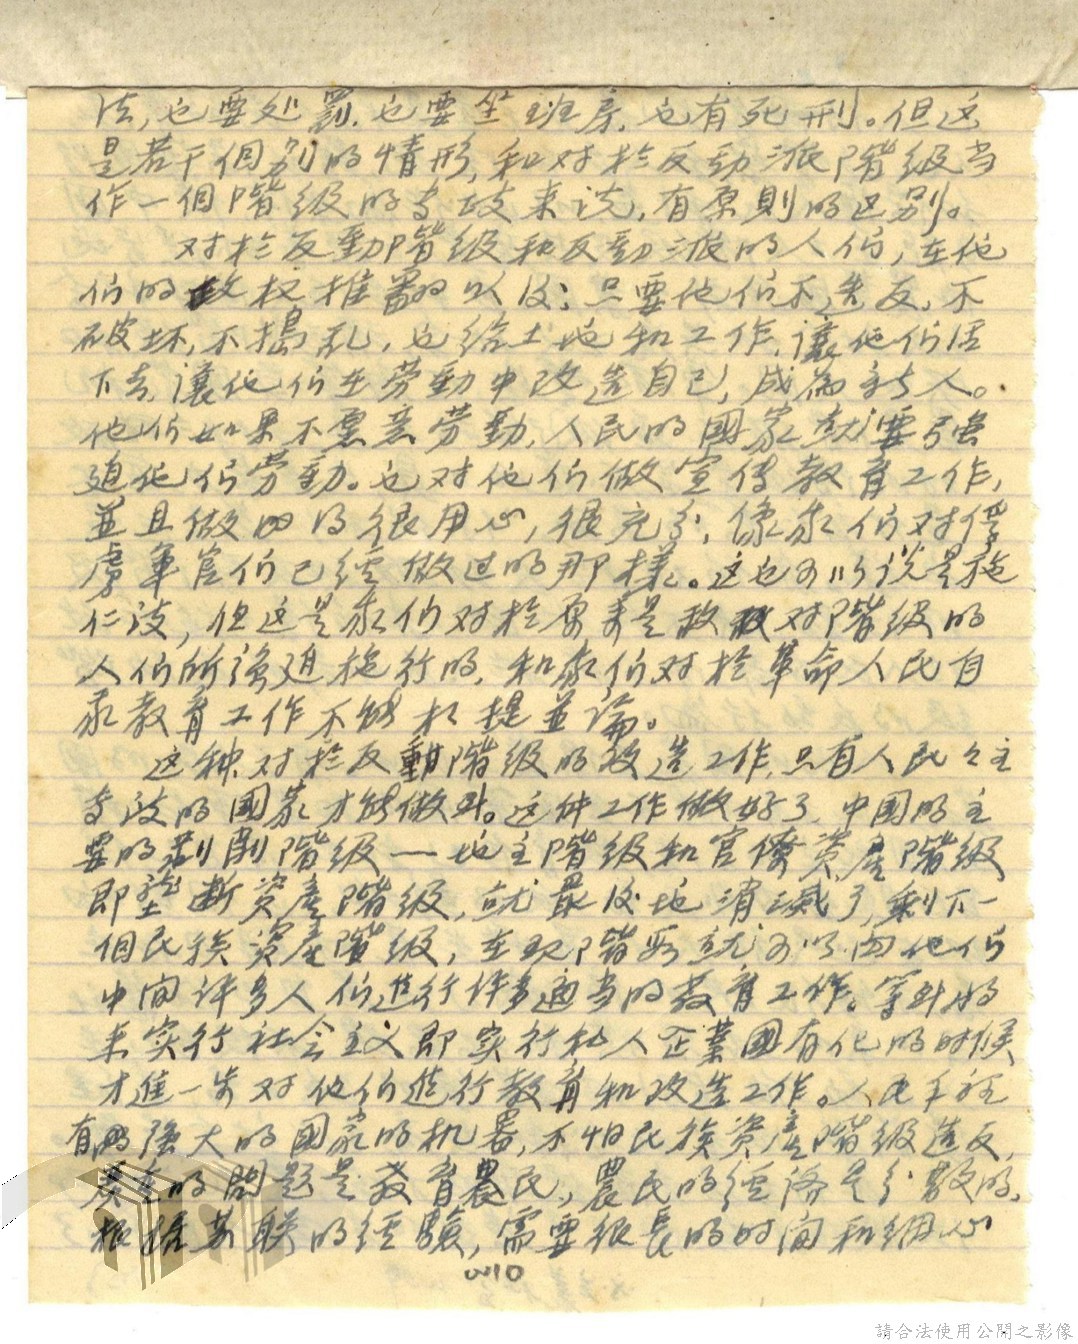 法，也要处罰，也要坐班房，也有死刑。但这
是若干個别的情形，和对於反动派階級当
作一個階級的专政来说，有原則的区别。
对於反動階級和反动派的人们，在他
们的政权推翻以后，只要他们不造反，不
破坏，不搗乱，也给土地和工作，讓他们活
下去，讓他们在劳動中改造自己，成為新人。
他们如果不愿意劳動，人民的國家就要强
迫他们劳動。也对他们做宣传教育工作，
並且做的很用心，很充分，像我们对俘
虜軍官们已經做过的那様。这也可以说是施
仁政，但这是我们对於原来是敌对階级的
人们所強迫施行的，和我们对於革命人民自
我教育工作不能相提並論。
这种对於反動階级的改造工作，只有人民々主
专政的國家才能做到。这件工作做好了，中国的主
要的剥削階级—地主階级和官僚資產階级
即壟断資產階级，就最后地消滅了，剩下一
個民族資產階级，在现階段就可以向他们
中间许多人们進行许多適当的教育工作。等到将
来实行社会主义即实行私人企業國有化的时候
才進一步对他们進行教育和改造工作。人民手裡
有強大的國家的机器，不怕民族資產階级造反，
嚴重的問题是教育農民，農民的經济是分散的，
根据苏联的經験，需要很長的时间和细心
10
請合法使用公開之影像